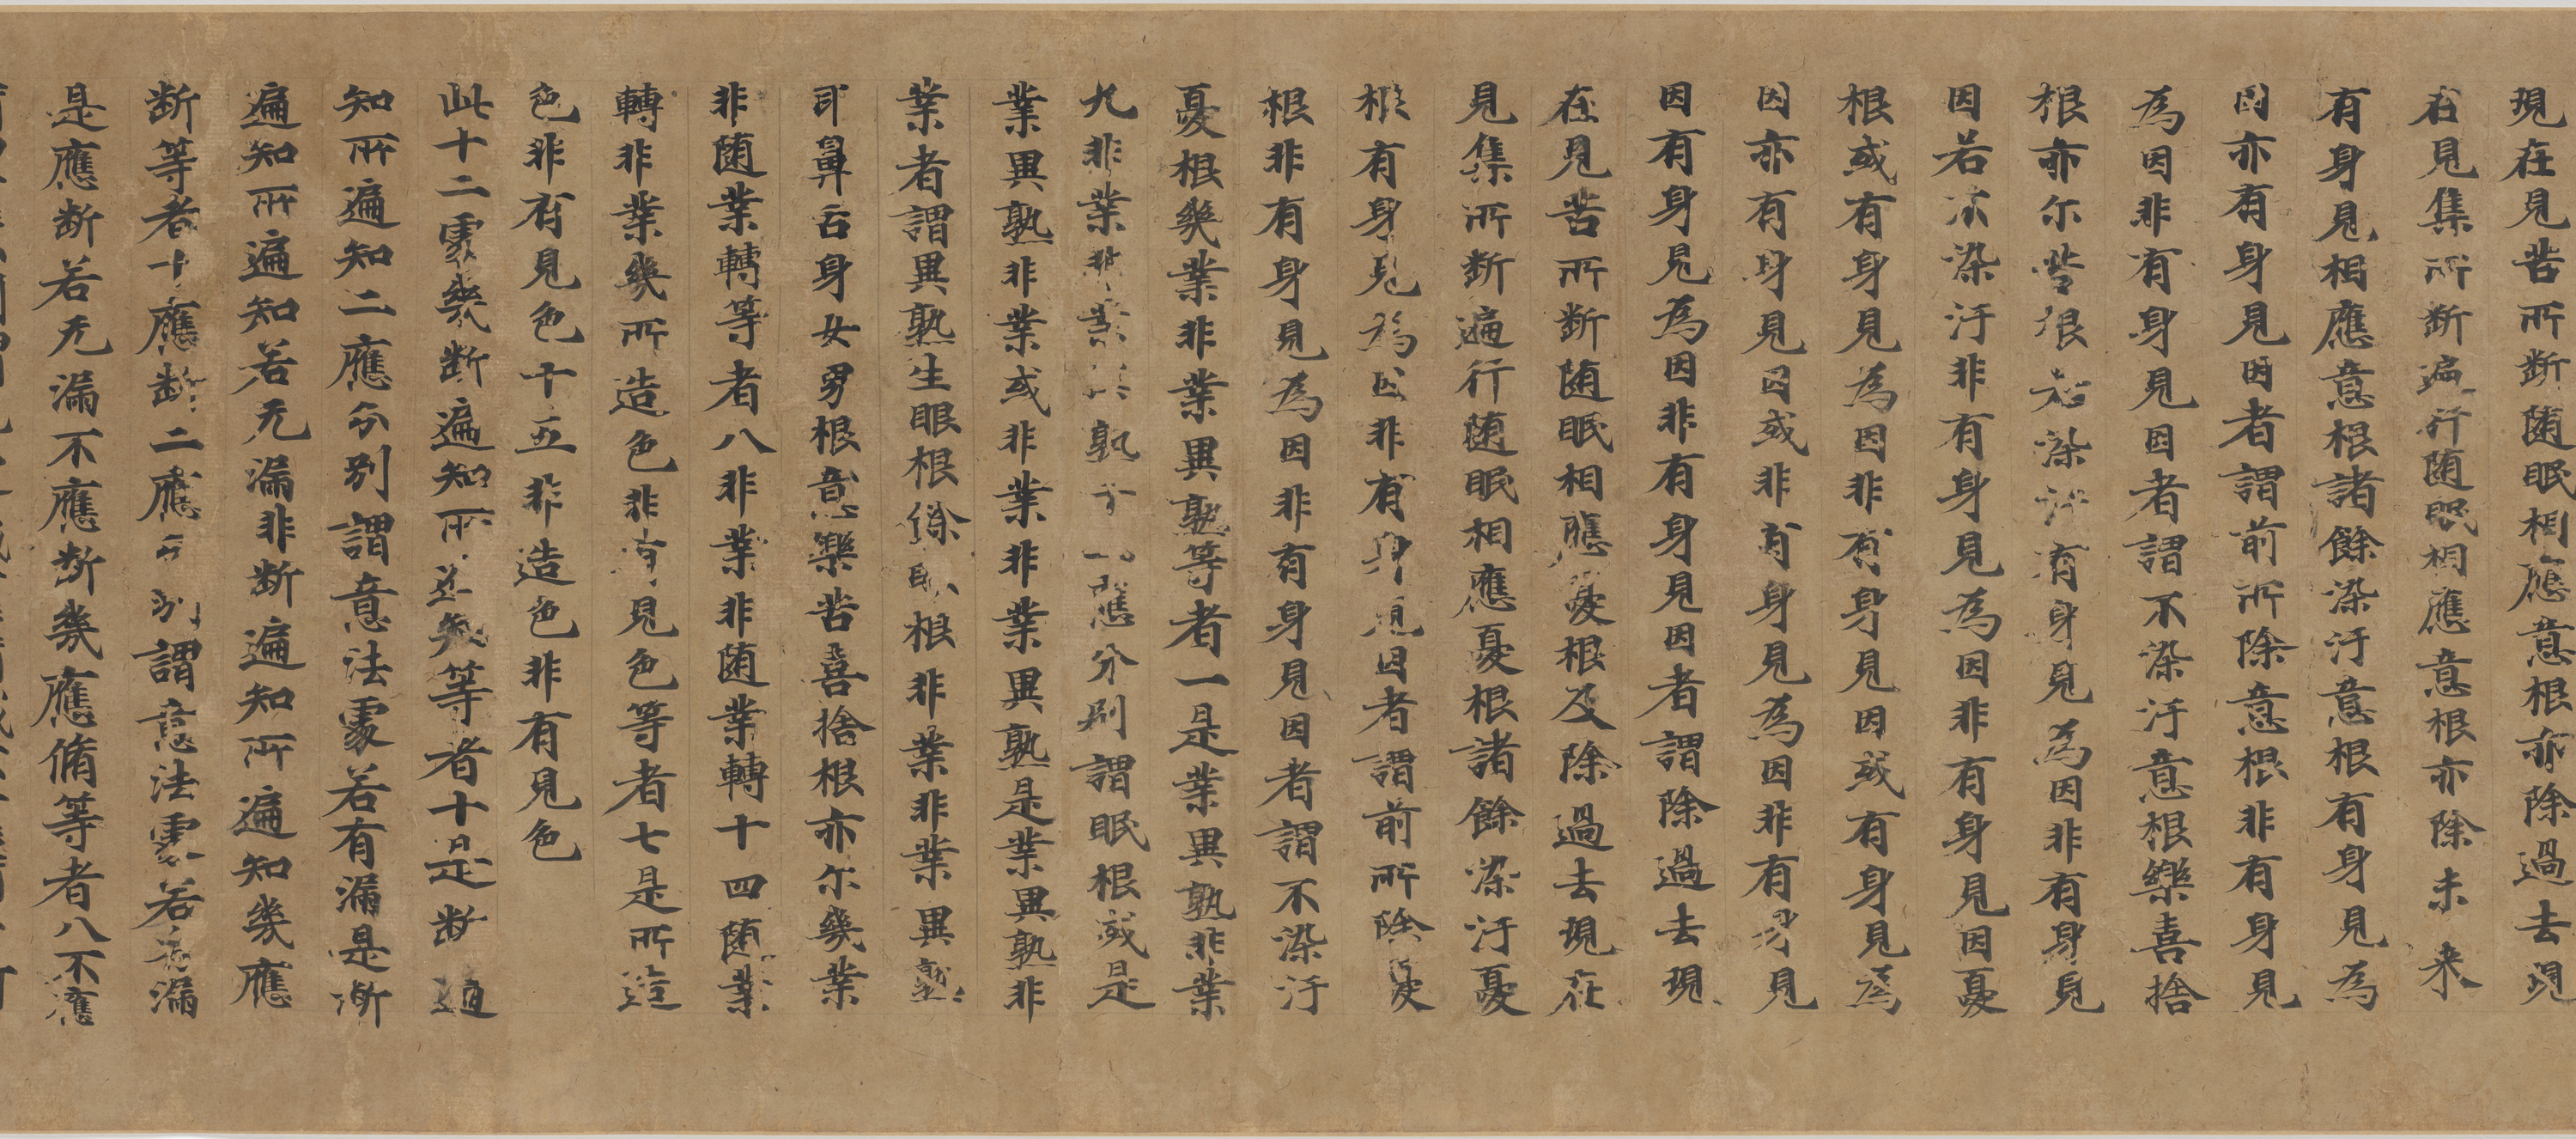 現在見苦所断随眠相應意根亦除過去現
在見集所断遍行随眠相應意根亦除未来
有身見相應意根諸餘染汙意根有身見為
因亦有身見因者謂前所除意根非有身見
為因非有身見因者謂不染汙意根樂喜捨
根亦尔苦根若染汙有身見為因非有身見
因若不染汙非有身見為因非有身見因憂
根或有身見為因非有身見因或有身見為
因亦有身見因或非有身見為因非有身見
因有身見為因非有身見因者謂除過去現
在見苦所断随眠相應憂根及除過去現在
見集所断遍行随眠相應憂根諸餘染汙憂
根有身見為因非有身見因者謂前所除憂
根非有身見為因非有身見因者謂不染汙
憂根幾業非業異熟等者一是業異熟非業
九非業非業異熟十一應分別謂眼根或是
業異熟非業或非業非業異熟是業異熟非
業者謂異熟生眼根餘眼根非業非業異熟
耳鼻舌身女男根意樂苦喜捨根亦尔幾業
非随業轉等者八非業非随業轉十四随業
轉非業幾所造色非有見色等者七是所造
色非有見色十五非造色非有見色
此十二處幾断遍知所遍知等者十是断遍
知所遍知二應分別謂意法處若有漏是断
遍知所遍知若无漏非断遍知所遍知幾應
断等者十應断二應分別謂意法處若有漏
是應断若无漏不應断幾應脩等者八不應